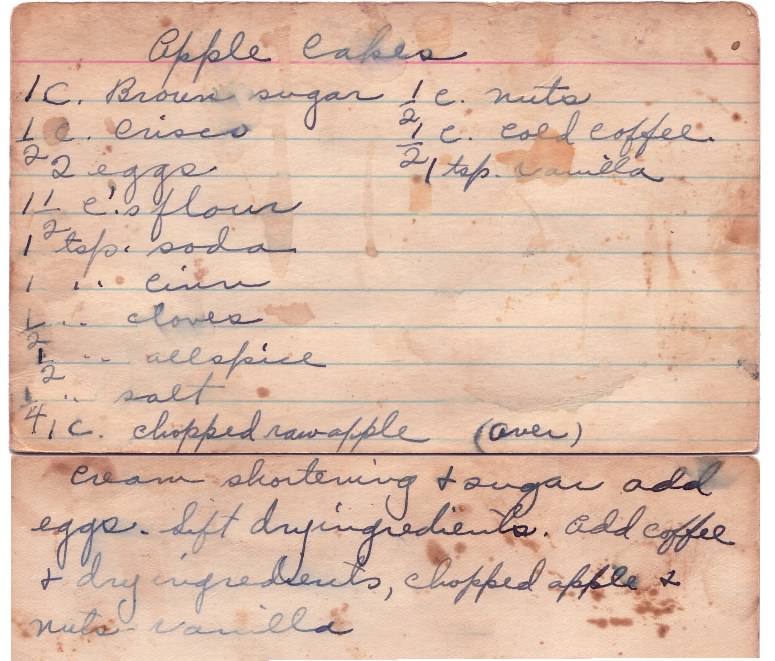 Apple Cakes
1 C. Brown sugar
1/2 c. Crisco
2 eggs
1 1/2 c's flour
1 tsp. soda
1 " cinn
1/2 " cloves
1/2 " allspice
1/4 " salt
1 C. chopped raw apple (over)
1/2 c. nuts
1/2 c. cold coffee.
1 tsp. vanilla
Cream shortening & sugar add
eggs. Sift dry ingredients. Add coffee
& dry ingredients, chopped apple &
nuts - vanilla